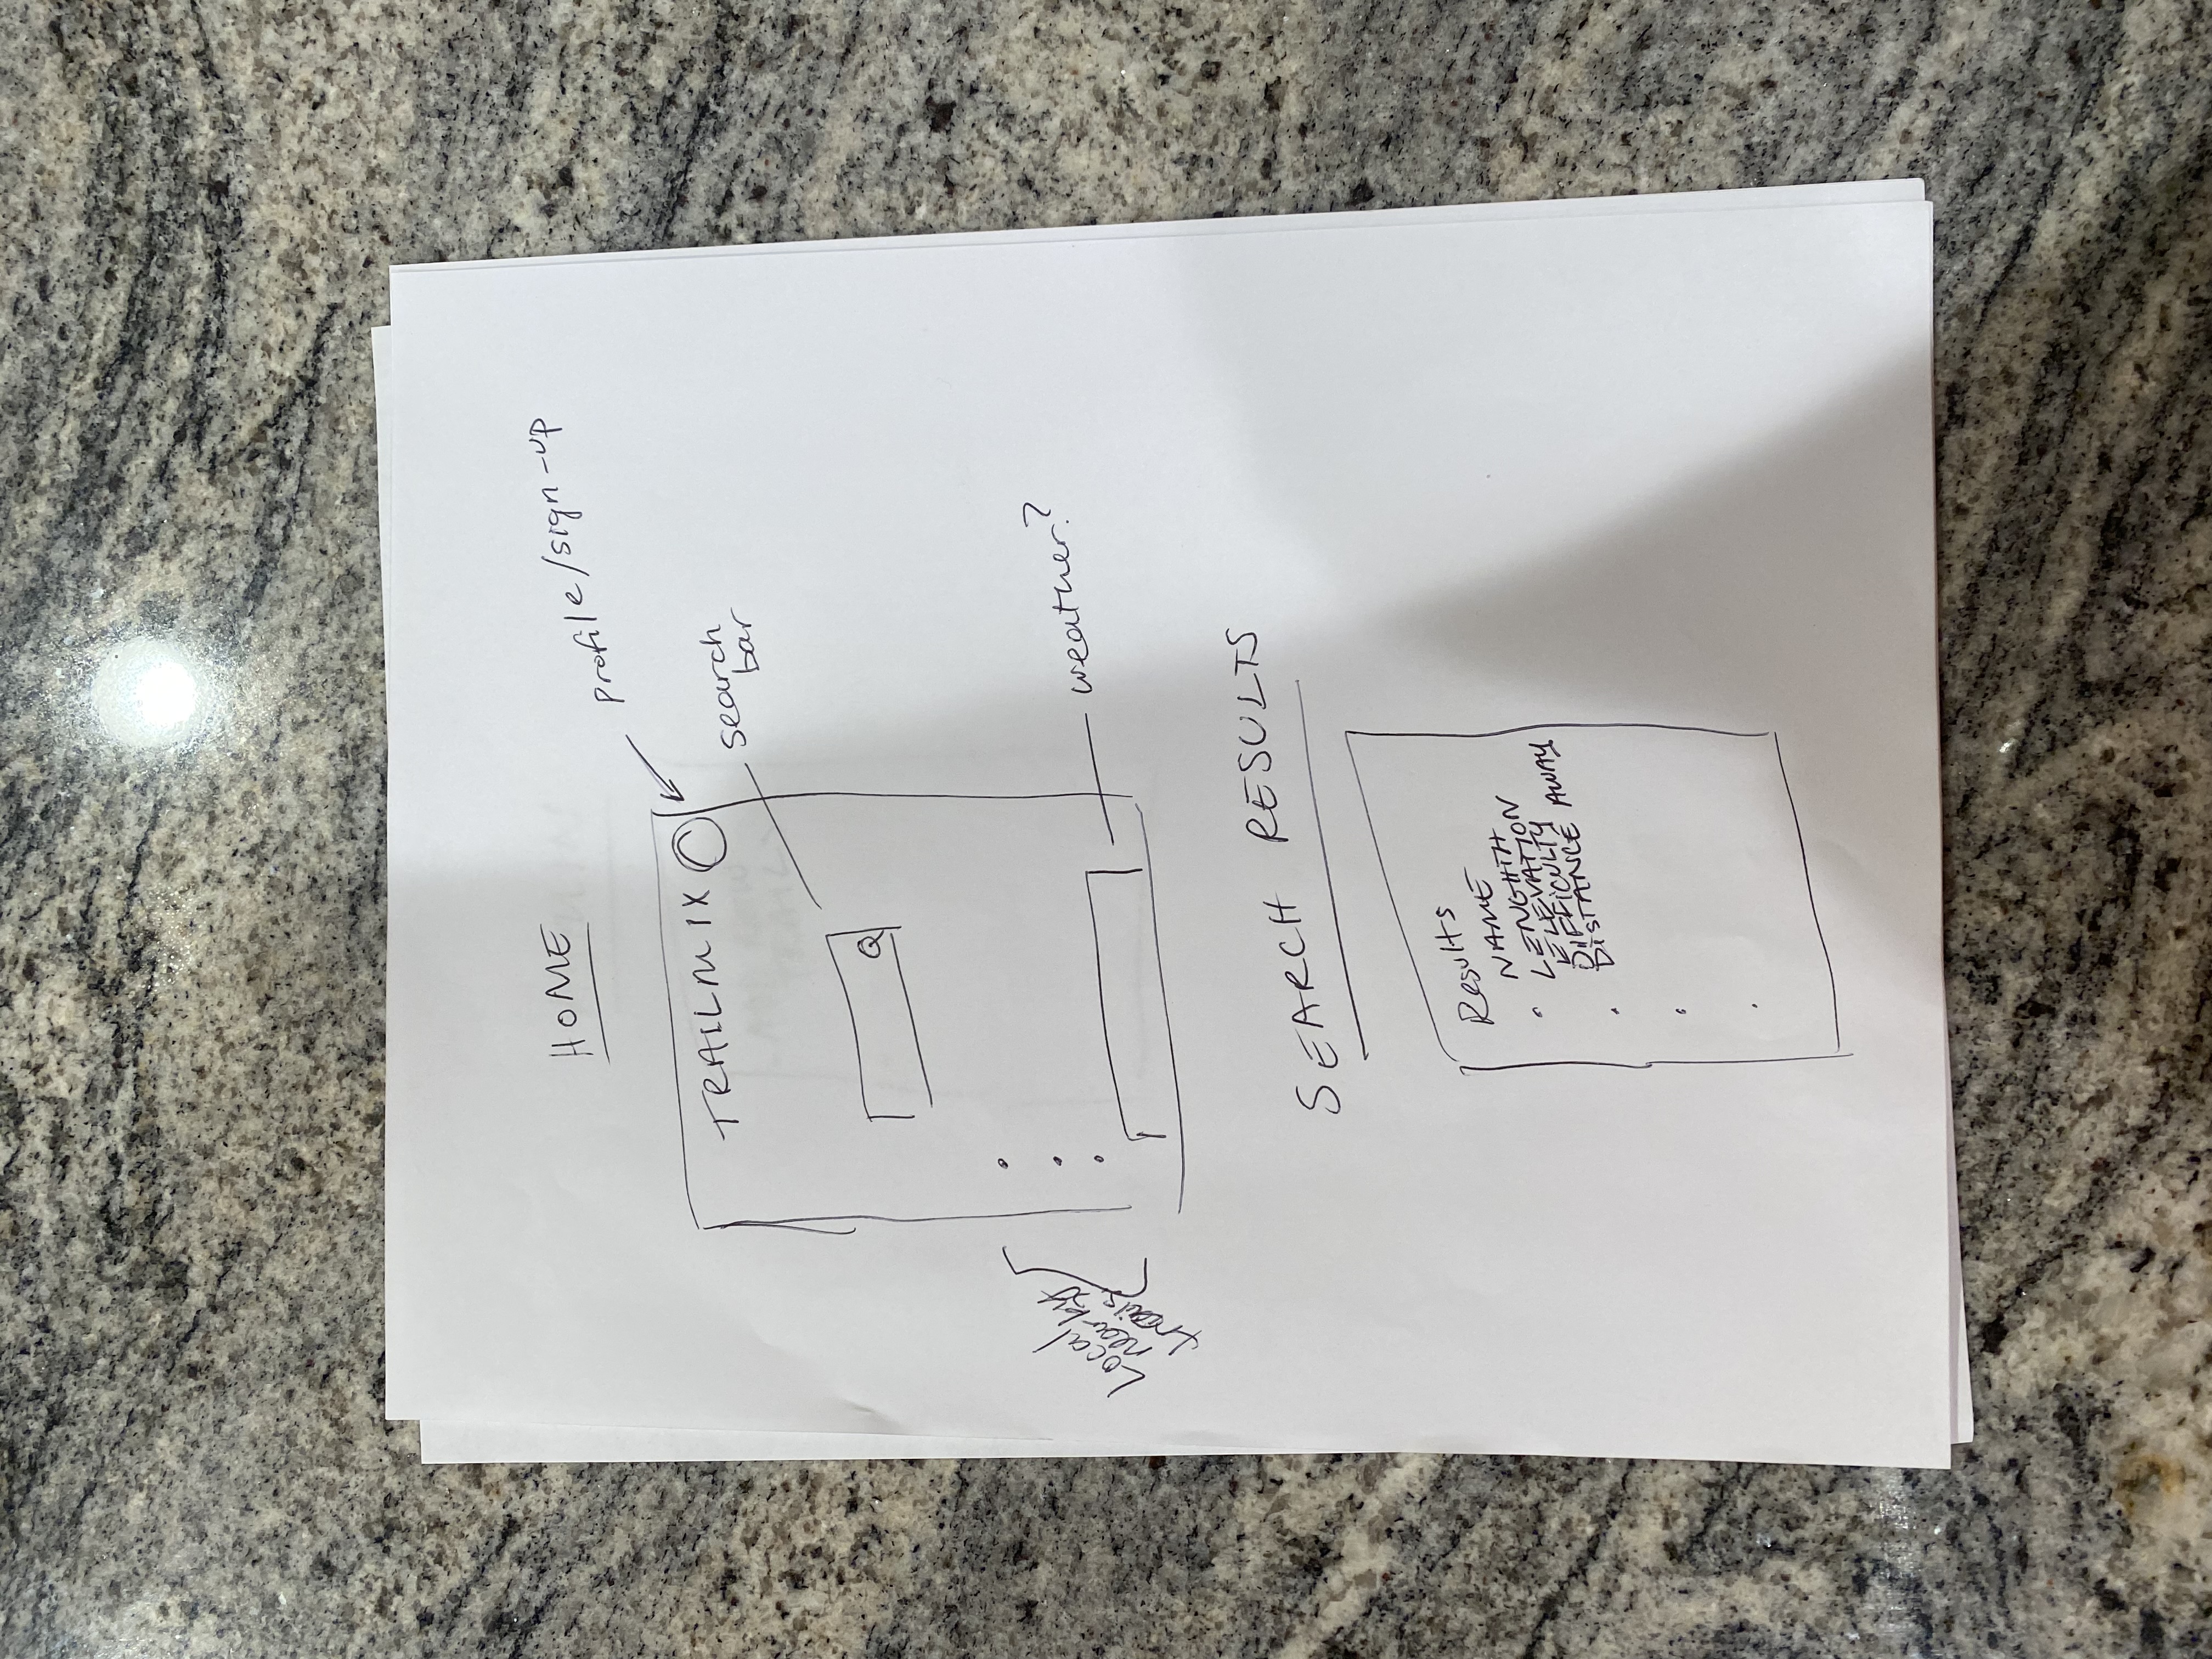 HOME
profile/sign-up
TRAILMIX
search
bar
Local
nearby
trails
weather?
SEARCH RESULTS
Results
NAME
LENGHTH
ELEVATION
DIFFICULTY
DISTANCE AWAY